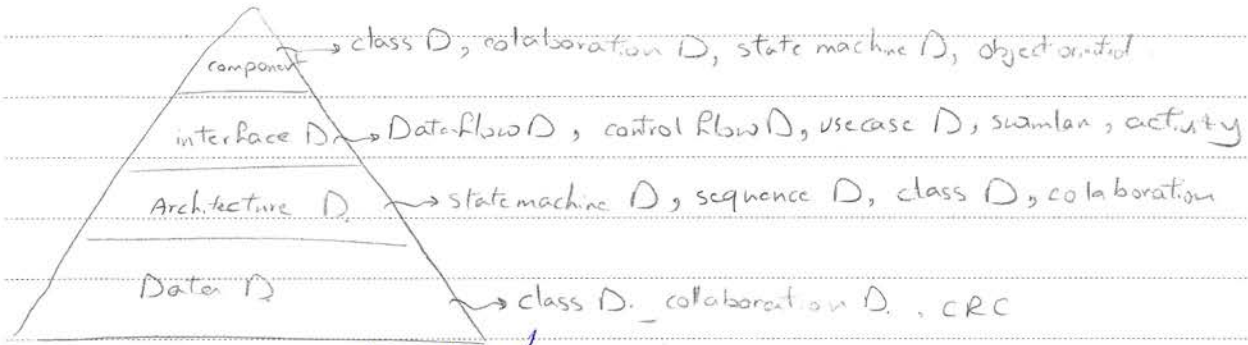 component → class D, colaboration D, state machine D, object oriented
interface D → Dataflow D, control flow D, usecase D, swimlan, activity
Architecture D. → statemachine D, sequence D, class D, colaboration
Data D → class D. collaboration D. . CRC